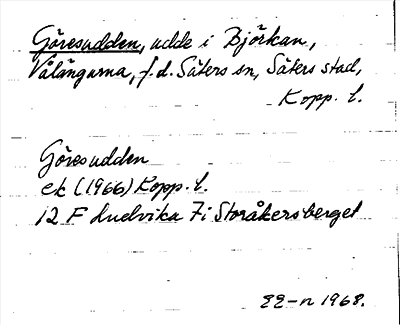 Göresudden, udde i Björkan,
Vålängarna, f.d. Säters sn, Säters stad,
Kopp. l.
Göresudden
ek (1966) Kopp. l.
12 F Ludvika 7i Storåkersberget
EE-n 1968.